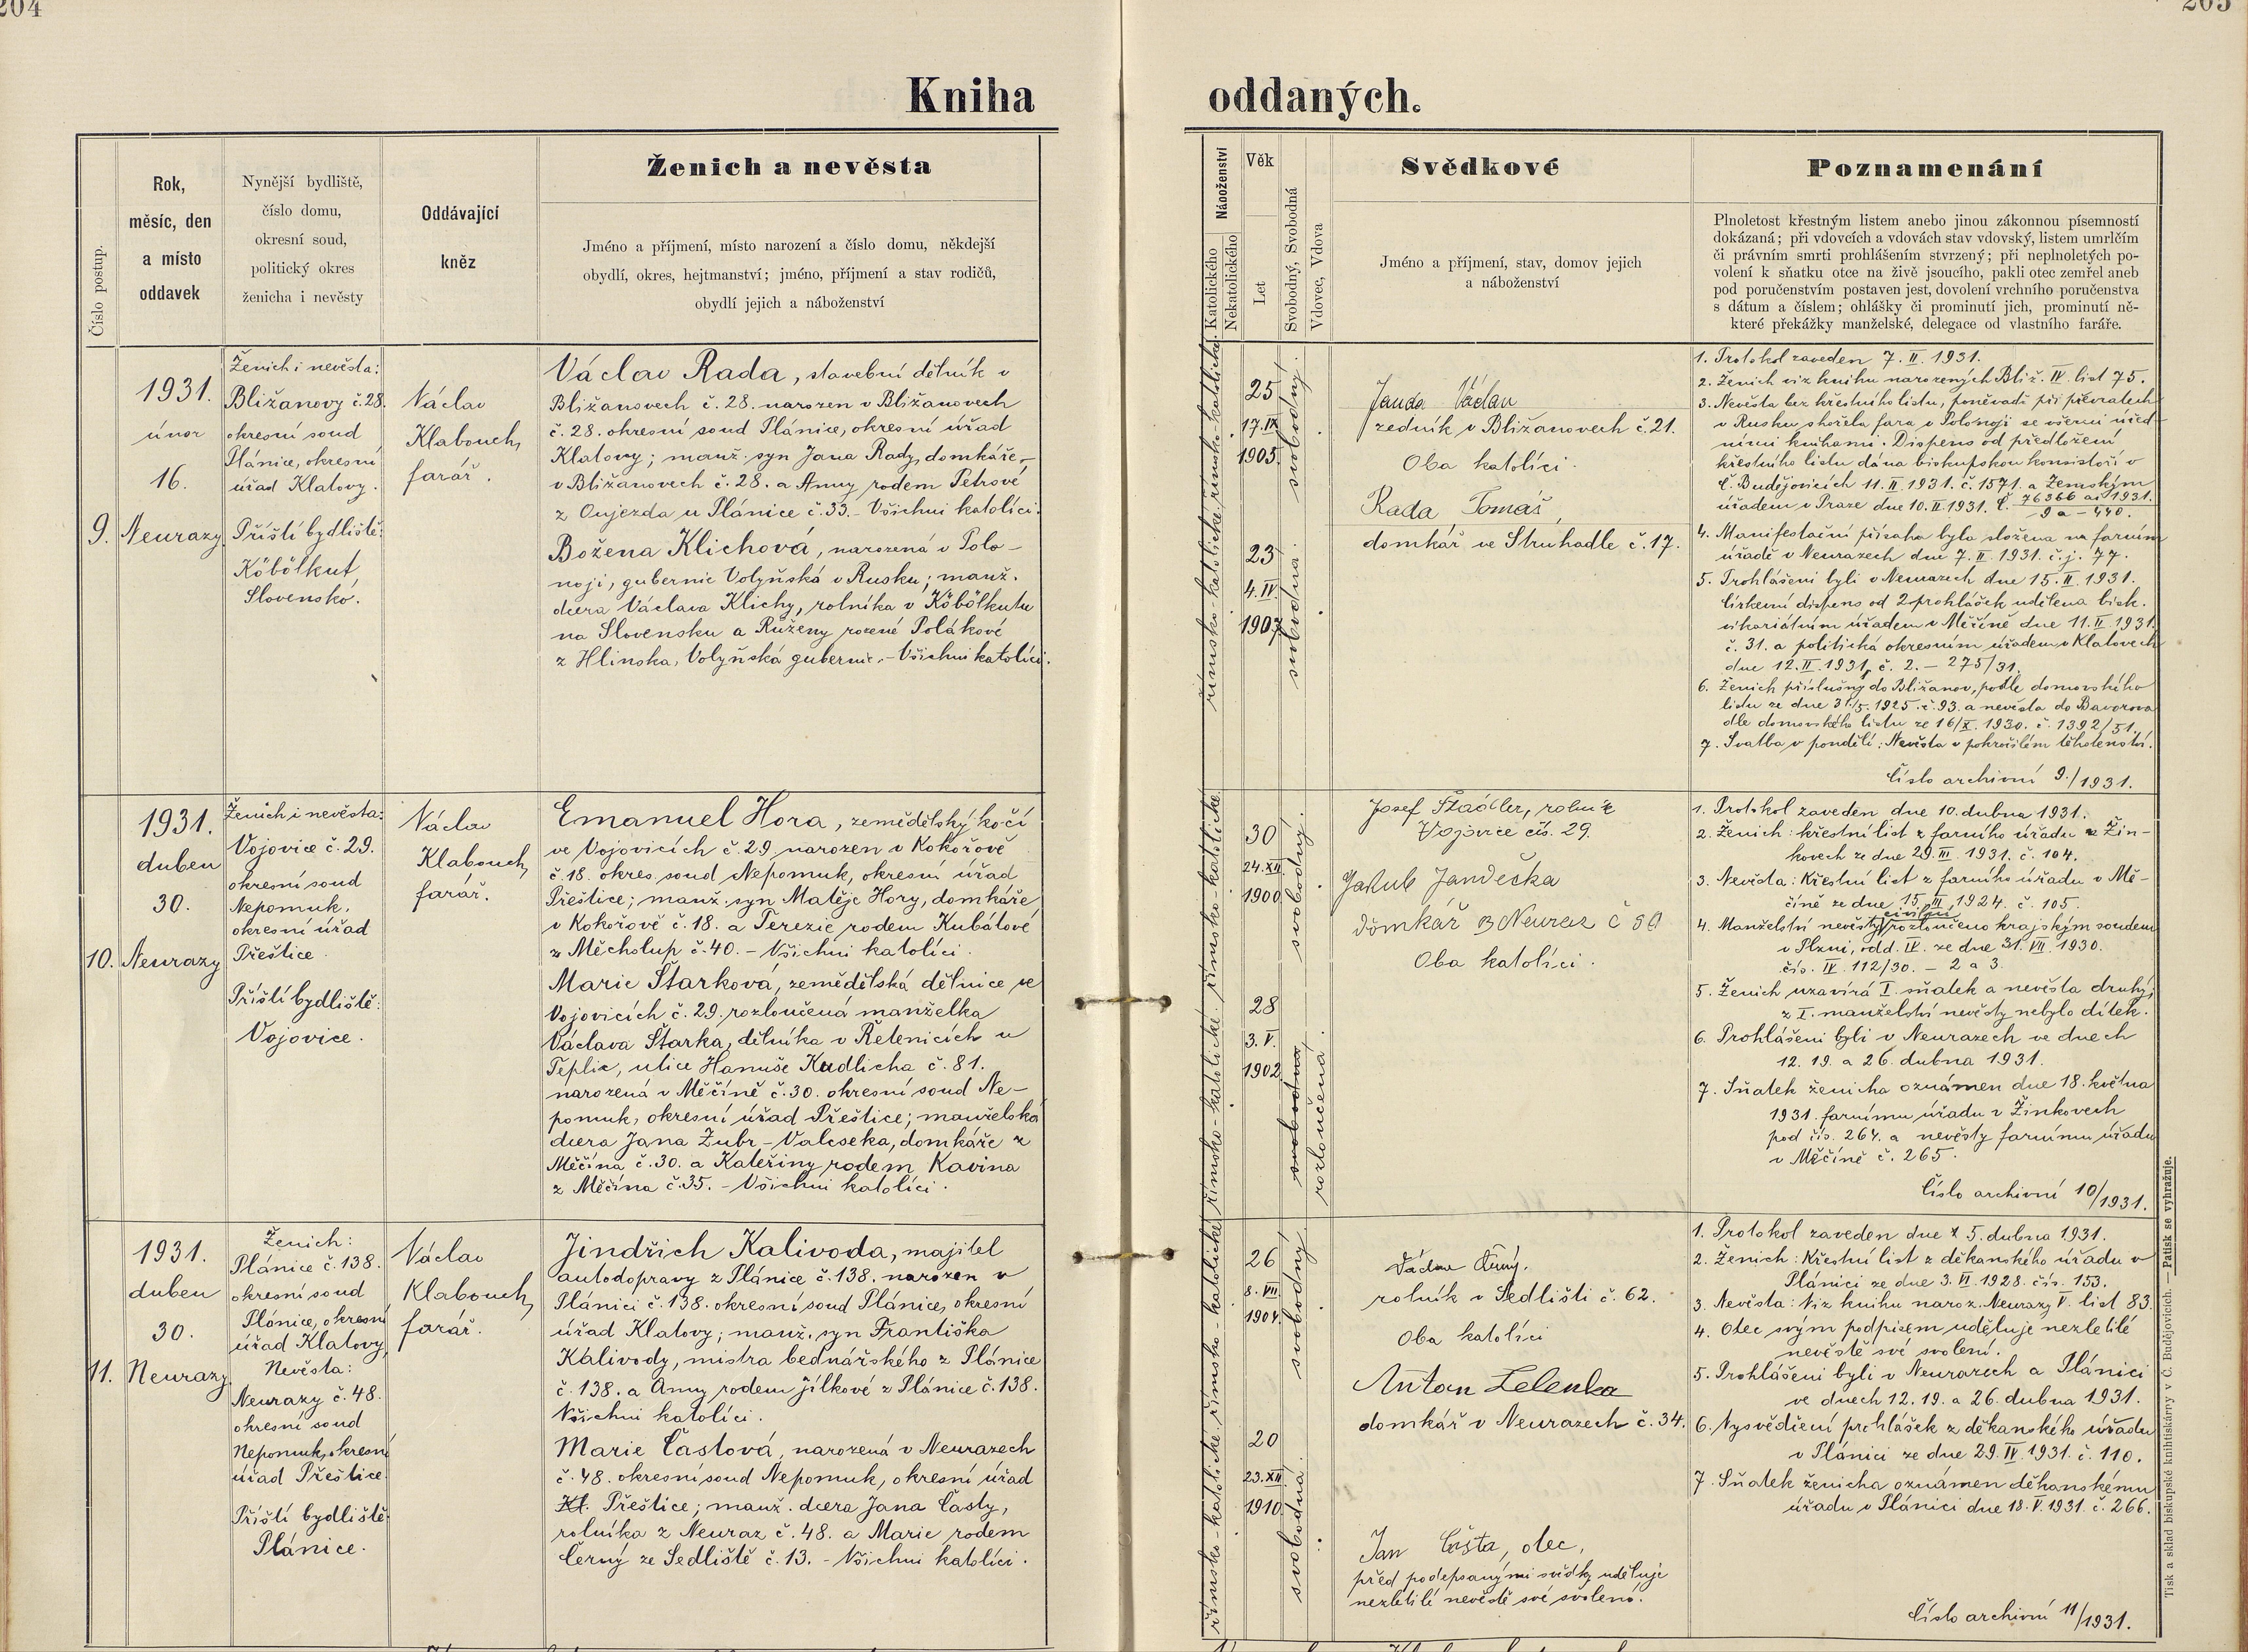 204
205
Kniha oddaných.
Číslo postup.
Rok,
měsíc, den
a místo
oddavek
Nynější bydliště,
číslo domu,
okresní soud,
politický okres
ženicha i nevěsty
Oddávající
kněz
Ženich a nevěsta
Jméno a příjmení, místo narození a číslo domu, někdejší
obydlí, okres, hejtmanství; jméno, příjmení a stav rodičů,
obydlí jejich a náboženství
Náboženství
Katolického
Nekatolického
Věk
Let
Svobodný, Svobodná
Vdovec, Vdova
Svědkové
Jméno a příjmení, stav, domov jejich
a náboženství
Poznamenání
Plnoletost křestným listem anebo jinou zákonnou písemností
dokázaná; při vdovcích a vdovách stav vdovský, listem umrlčím
či právním smrti prohlášením stvrzený; při neplnoletých po-
volení k sňatku otce na živě jsoucího, pakli otec zemřel aneb
pod poručenstvím postaven jest, dovolení vrchního poručenstva
s dátum a číslem; ohlášky či prominutí jich, prominutí ně-
které překážky manželské, delegace od vlastního faráře.
9.
1931.
únor
16.
Neurazy
Ženich i nevěsta:
Bližanovy č. 28.
okresní soud
Plánice, okresní
úřad Klatovy.
Příští bydliště:
Köbölkut
Slovensko.
Václav
Klabouch,
farář.
Václav Rada, stavební dělník v
Bližanovech č. 28. narozen v Bližanovech
č. 28. okresní soud Plánice, okresní úřad
Klatovy; manž. syn Jana Rady, domkáře
v Bližanovech č. 28. a Anny rodem Petrové
z Oujezda u Plánice č. 33. – Všichni katolíci.
Božena Klichová, narozená v Polo-
noji, gubernie Volyňská v Rusku; manž.
dcera Václava Klichy, rolníka v Köbölkutu
na Slovensku a Růženy rozené Polákové
z Hlinska, Volyňská gubernie. – Všichni katolíci.
římsko-katolické. římsko-katolické.
25
17. IX.
1905.
svobodný.
23
4. IV.
1907
svobodná.
Janda Václav
zedník v Bližanovech č. 21.
Oba katolíci.
Rada Tomáš,
domkář ve Struhadle č. 17.
1. Protokol zaveden 7. II. 1931.
2. Ženich viz knihu narozených Bliž. IV. list 75.
3. Nevěsta bez křestního listu, poněvadž při převratech
v Rusku shořela fara v Polonoji se všemi úřed-
ními knihami. Dispens od předložení
křestního listu dána biskupskou konsistoří v
Č. Budějovicích 11. II. 1931. č. 1571. a Zemským
úřadem v Praze dne 10. II. 1931. č. 76366 ai 1931.
9a – 440.
4. Manifestační přísaha byla složena na farním
úřadě v Neurazech dne 7. II. 1931. č. j. 77.
5. Prohlášeni byli v Neurazech dne 15. II. 1931.
Církevní dispens od 2 prohlášek udělena bisk.
vikariátním úřadem v Měčíně dne 11. II. 1931.
č. 31. a politická okresním úřadem v Klatovech
dne 12. II. 1931, č. 2. – 275/31.
6. Ženich příslušný do Bližanov, podle domovského
listu ze dne 31/5. 1925. č. 93. a nevěsta do Bavorova
dle domovského listu ze 16/X. 1930. č. 1392/51.
7. Svatba v pondělí: Nevěsta v pokročilém těhotenství.
Číslo archivní 9./1931.
10.
1931.
duben
30.
Neurazy
Ženich i nevěsta:
Vojovice č. 29.
okresní soud
Nepomuk,
okresní úřad
Přeštice.
Příští bydliště:
Vojovice.
Václav
Klabouch,
farář.
Emanuel Hora, zemědělský kočí
ve Vojovicích č. 29. narozen v Kokořově
č. 18. okres. soud Nepomuk, okresní úřad
Přeštice; manž. syn Matěje Hory, domkáře
v Kokořově č. 18. a Terezie rodem Kubátové
z Měcholup č. 40. – Všichni katolíci.
Marie Štarková, zemědělská dělnice ve
Vojovicích č. 29. rozloučená manželka
Václava Štarka, dělníka v Řetenicích u
Teplic, ulice Hanuše Kudlicha č. 81.
narozená v Měčíně č. 30. okresní soud Ne-
pomuk, okresní úřad Přeštice; manželská
dcera Jana Zubr-Valeseka, domkáře z
Měčína č. 30. a Kateřiny rodem Kavina
z Měčína č. 35. – Všichni katolíci.
římsko-katolické. římsko-katolické.
30
24. XII.
1900
svobodný.
28
3. V.
1902
svobodná
rozloučená.
Josef Štádler, rolník
Vojovice čís. 29.
Jakub Jandečka
domkář z Neuraz č 50
Oba katolíci.
1. Protokol zaveden dne 10. dubna 1931.
2. Ženich: křestní list z farního úřadu v Žin-
kovech ze dne 29. III. 1931. č. 104.
3. Nevěsta: Křestní list z farního úřadu v Mě-
číně ze dne 15. III. 1924. č. 105.
4. Manželství nevěsty civilní rozloučeno krajským soudem
v Plzni, odd. IV. ze dne 31. VII. 1930.
čís. IV. 112/30. – 2 a 3.
5. Ženich uzavírá I. sňatek a nevěsta druhý;
z I. manželství nevěsty nebylo dítek.
6. Prohlášeni byli v Neurazech ve dnech
12. 19. a 26. dubna 1931.
7. Sňatek ženicha oznámen dne 18. května
1931. farnímu úřadu v Žinkovech
pod čís. 264. a nevěsty farnímu úřadu
v Měčíně č. 265.
Číslo archivní 10/1931.
11.
1931.
duben
30.
Neurazy
Ženich:
Plánice č. 138.
okresní soud
Plánice, okresní
úřad Klatovy,
Nevěsta:
Neurazy č. 48.
okresní soud
Nepomuk, okresní
úřad Přeštice.
Příští bydliště:
Plánice.
Václav
Klabouch,
farář.
Jindřich Kalivoda, majitel
autodopravy z Plánice č. 138. narozen v
Plánici č. 138. okresní soud Plánice, okresní
úřad Klatovy; manž. syn Františka
Kalivody, mistra bednářského z Plánice
č. 138. a Anny rodem Jílkové z Plánice č. 138.
Všichni katolíci.
Marie Častová, narozená v Neurazech
č. 48. okresní soud Nepomuk, okresní úřad
Kl. Přeštice; manž. dcera Jana Časty,
rolníka z Neuraz č. 48. a Marie rodem
Černý ze Sedliště č. 13. – Všichni katolíci.
římsko-katolické. římsko-katolické.
26
8. VII.
1904.
svobodný.
20
23. XII.
1910.
svobodná.
Václav Černý.
rolník v Sedlišti č. 62.
Oba katolíci
Anton Zelenka
domkář v Neurazech č. 34.
Jan Časta, otec,
před podepsanými svědky uděluje
nezletilé nevěstě své svolení.
1. Protokol zaveden dne 5. dubna 1931.
2. Ženich: Křestní list z děkanského úřadu v
Plánici ze dne 3. VI. 1928. čís. 153.
3. Nevěsta: Viz knihu naroz. Neurazy V. list 83.
4. Otec svým podpisem uděluje nezletilé
nevěstě své svolení.
5. Prohlášeni byli v Neurazech a Plánici
ve dnech 12. 19. a 26. dubna 1931.
6. Vysvědčení prohlášek z děkanského úřadu
v Plánici ze dne 29. IV. 1931. č. 110.
7. Sňatek ženicha oznámen děkanskému
úřadu v Plánici dne 18. V. 1931. č. 266.
Číslo archivní 11/1931.
Tisk a sklad biskupské knihtiskárny v Č. Budějovicích. — Patisk se vyhražuje.